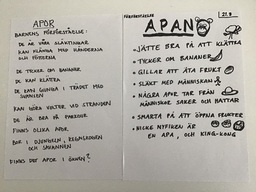 APOR
BARNENS FÖRFÖRSTÅELSE:
DE ÄR VÅRA SLÄKTINGAR
KAN KLÄTTRA MED HÄNDERNA
OCH FÖTTERNA
DE TYCKER OM BANANER
DE KAN KLÄTTRA
DE KAN GUNGA I TRÄDET MED
SVANSEN
KAN GÖRA VOLTER VID STRANDEN
DE ÄR BRA PÅ PARKOUR
FINNS OLIKA APOR
BOR I DJUNGELN, REGNSKOGEN
OCH SAVANNEN
FINNS DET APOR I ÖKNEN?
FÖRFÖRSTÅELSE
21.9
APAN
• JÄTTE BRA PÅ ATT KLÄTTRA
• TYCKER OM BANANER
• GILLAR ATT ÄTA FRUKT
• SLÄKT MED MÄNNISKAN
• NÅGRA APOR TAR FRÅN
MÄNNISKOR SAKER OCH MATTAR
• SMARTA PÅ ATT ÖPPNA FRUKTER
• NICKE NYFIKEN ÄR
EN APA, OCH KING-KONG